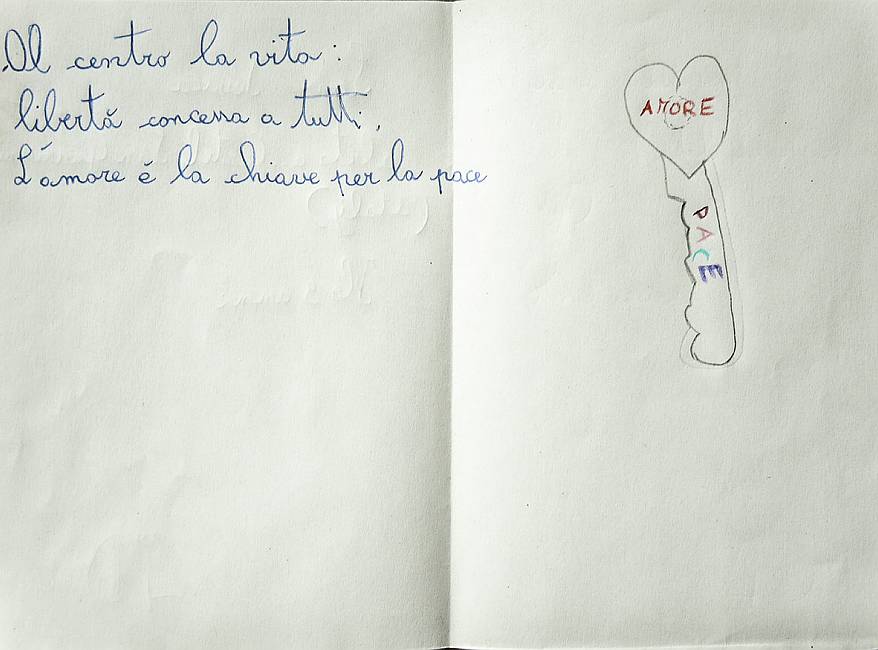 Al centro la vita:
libertà concessa a tutti,
L'amore è la chiave per la pace
AMORE
PACE